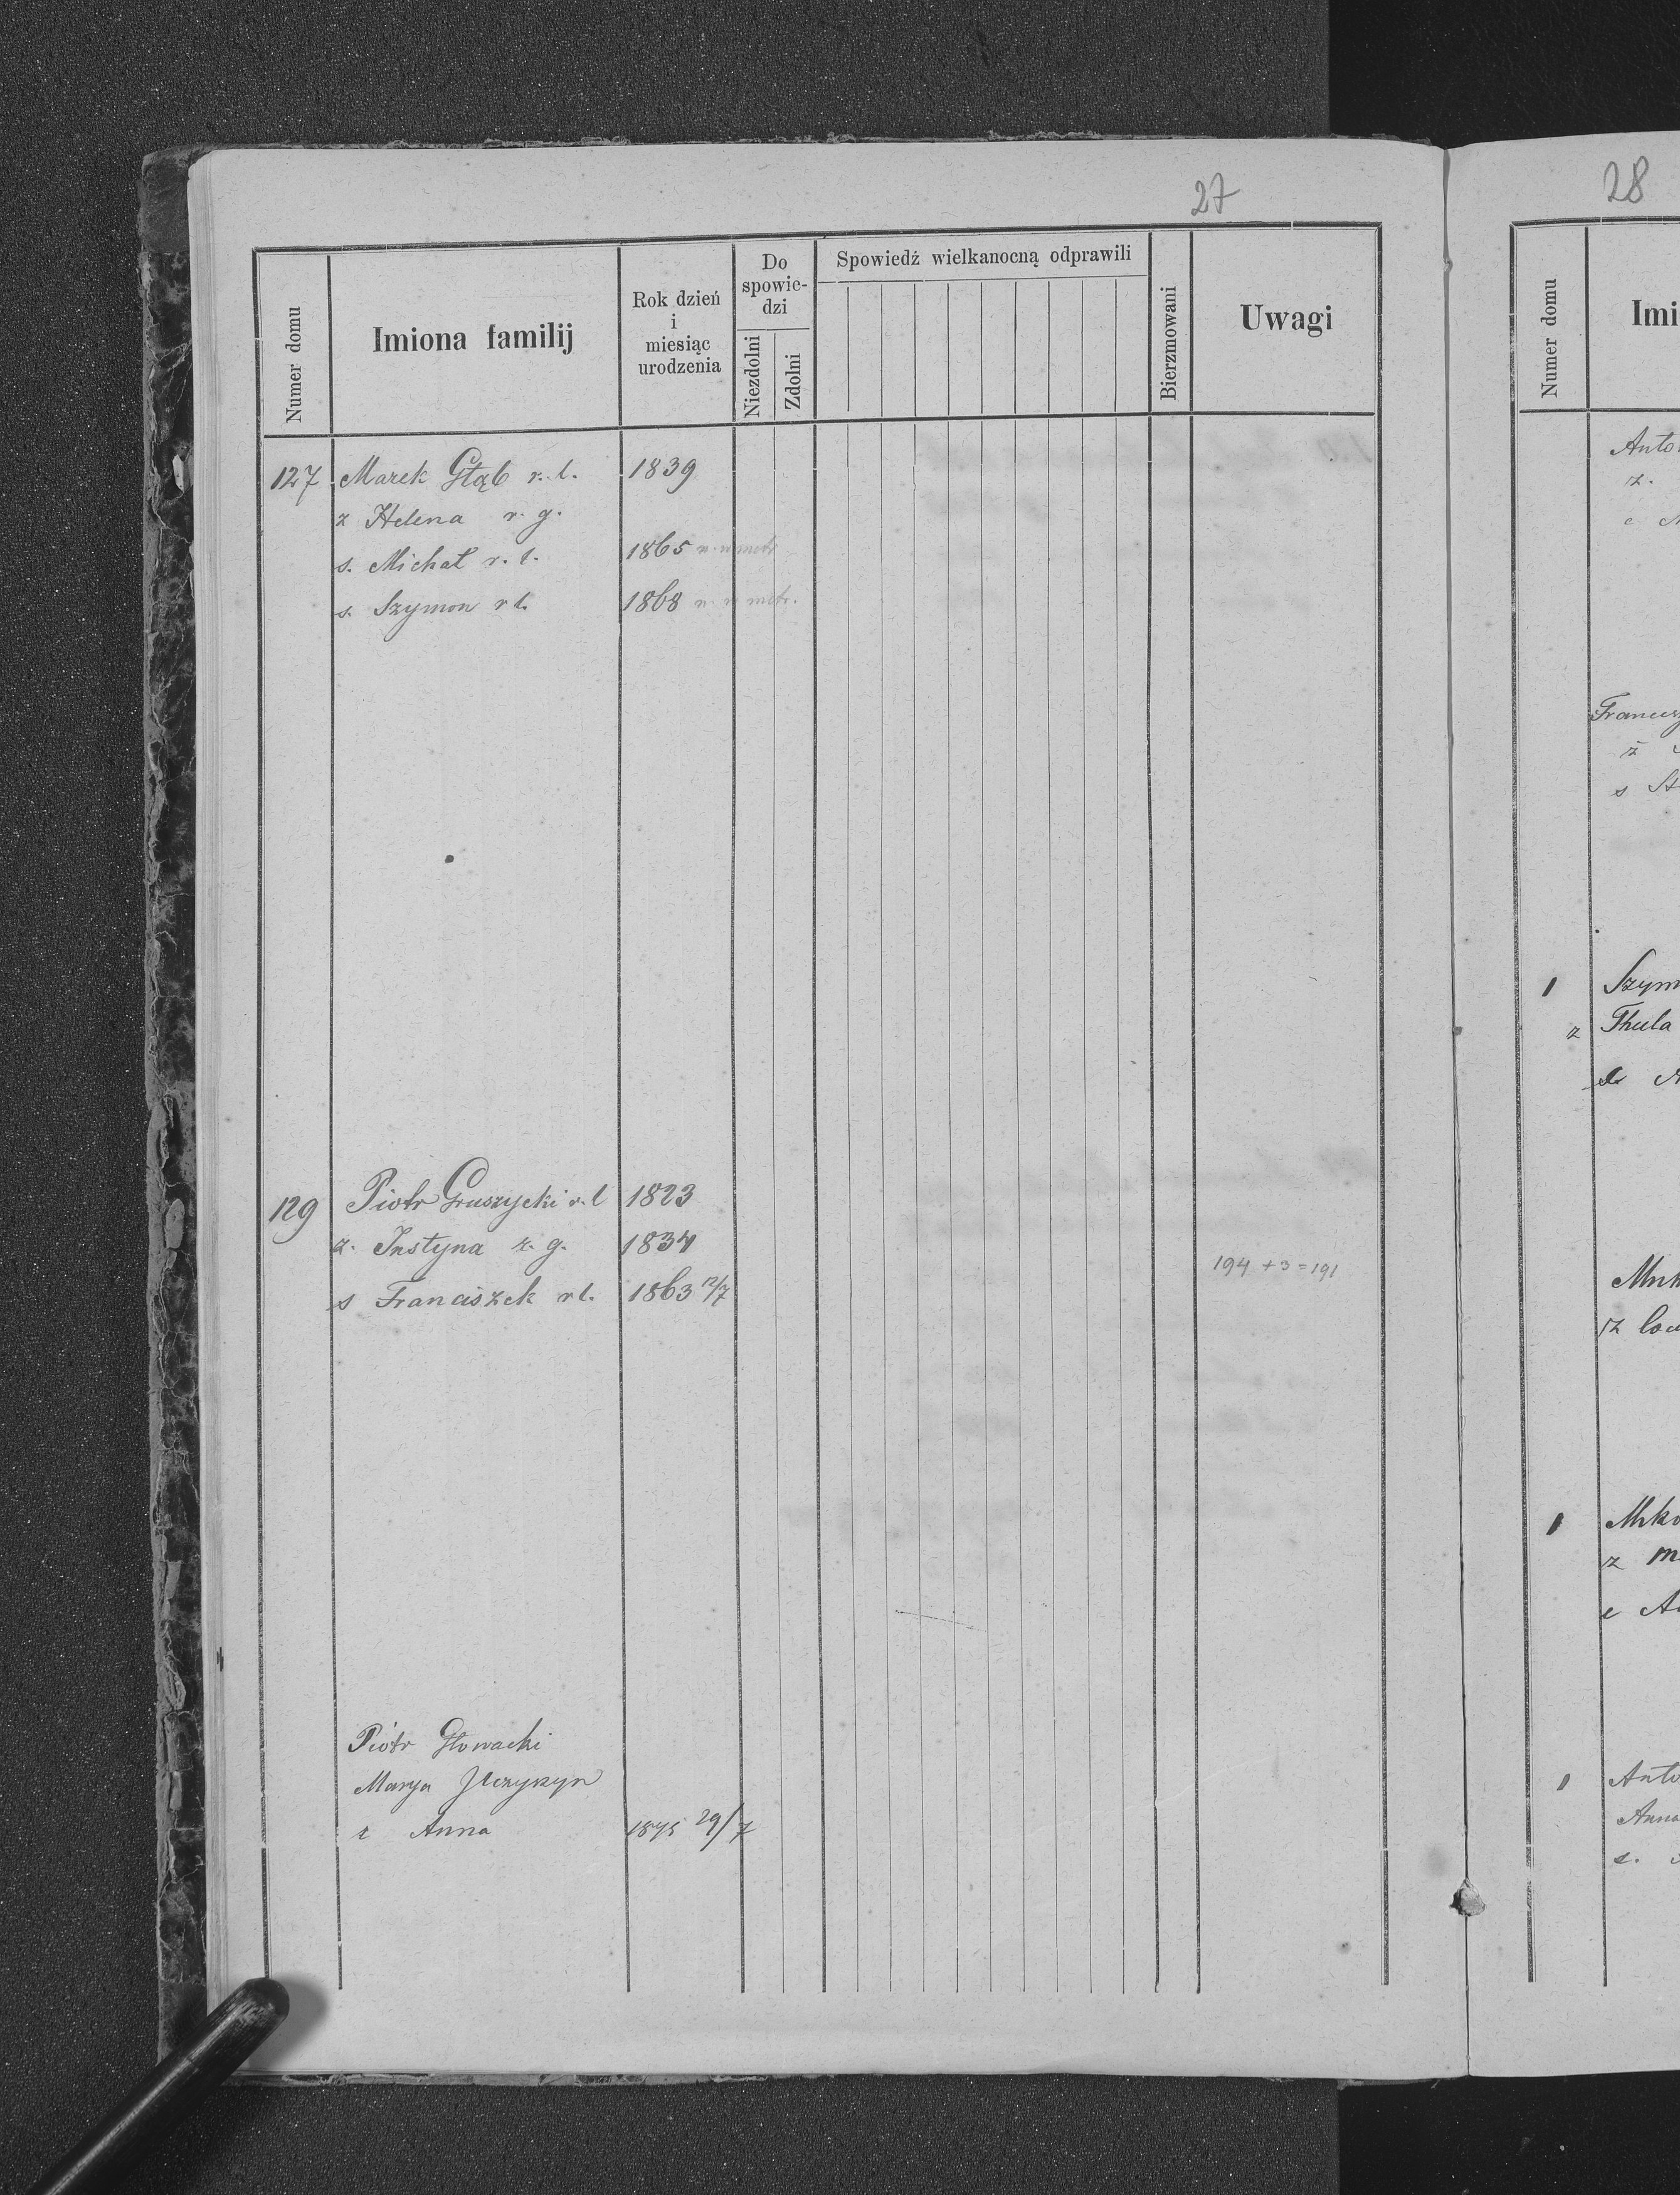 27
Numer domu
Imiona familij
Rok dzień
i
miesiąc
urodzenia
Do
spowie-
dzi
Niezdolni
Zdolni
Spowiedź wielkanocną odprawili
Bierzmowani
Uwagi
127 Marek Głąb r. l. 1839
z Helena r. g.
s. Michał r. l. 1865 n. w metr
s. Szymon r l. 1868 n. w metr.
129 Piotr Gruszycki r. l 1823
z. Justyna r. g. 1834
194 + 3 = 191
s Franciszek r l. 1863 12/7
Piotr Głowacki
Marya
c Anna 1875 29/7
28
Numer domu
Imi
Anto
z.
c
Francisz
z
s St
1 Szym
z Thula
z lou
1
z m
c
1 Anto
Anna